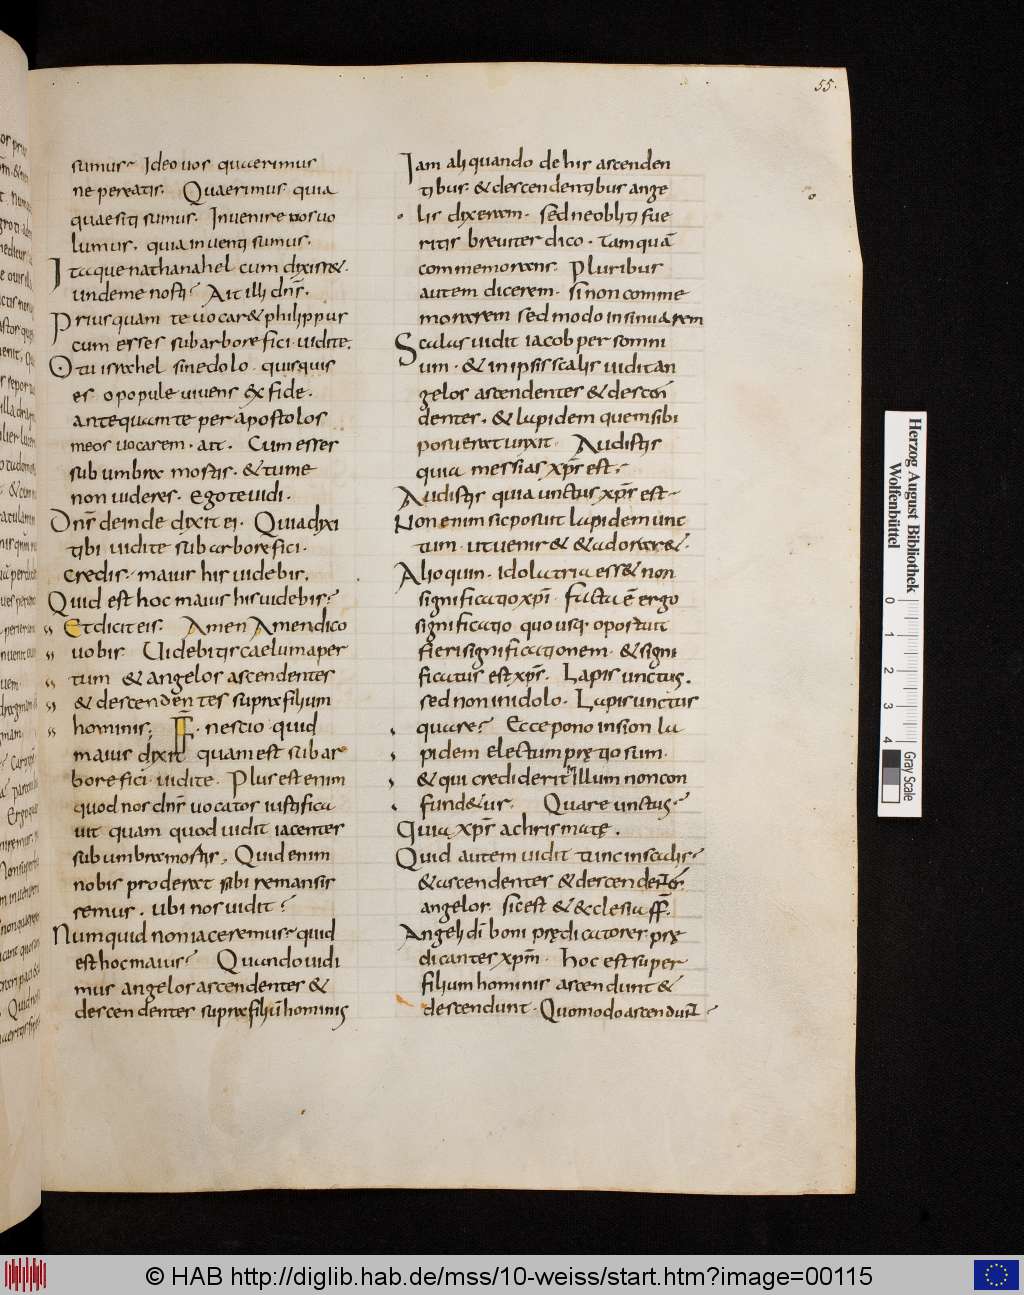 55.
sumus. Ideo uos quaerimus
ne pereatis. Quaerimus quia
quaesiti sumus. Inuenire uos uo
lumus. quia inuenti sumus.
Itaque nathanahel cum dixiss&.
unde me nosti? Ait illi dn̄s.
Prius quam te uocar& philippus
cum esses sub arbore fici. uidi te.
O tu israhel sine dolo. quisquis
es o popule uiuens ex fide.
antequam te per apostolos
meos uocarem. ait. Cum esses
sub umbra mostis. & tu me
non uideres. ego te uidi.
Dn̄s deinde dixit ei. Quia dixi
tibi uidi te sub arbore fici.
credis. maius his uidebis.
Quid est hoc maius his uidebis?
Et dicit eis. Amen Amen dico
uobis Uidebitis caelum aper
tum & angelos ascendentes
& descendentes supra filium
hominis; F̄F̄. nescio quid
maius dixit quam est sub ar
bore fici uidi te. Plus est enim
quod nos dn̄s uocatos iustifica
uit quam quod uidit iacentes
sub umbra mostis. Quid enim
nobis proderat si ibi remansis
semus. ubi nos uidit?
Numquid non iaceremus? quid
est hoc maius? Quando uidi
mus angelos ascendentes &
descendentes supra filiū hominis
Iam aliquando de his ascenden
tibus & descendentibus ange
lis dixeram. sed ne obliti fue
ritis breuiter dico. tamquā
commemorans. Pluribus
autem dicerem. si non comme
morarem sed modo insinuarem
Scalas uidit iacob per somni
um. & in ipsis scalis uidit an
gelos ascendentes & descen
dentes. & lapidem quem sibi
posuerat unxit. Audistis
quia messias xp̄s est.
Audistis quia unctus xp̄s est
Non enim sic posuit lapidem unc
tum. ut uenir& & adorar&.
Alioquin. idolatria ess& non
significatio xp̄i. facta ē ergo
significatio quo usq. oportuit
fieri significationem. & signi
ficatus est xp̄s. Lapis unctus.
sed non in idolo. Lapis unctus
quare? Ecce pono in sion la
pidem electum prętiosum.
& qui crediderit in illum non con
fund&ur. Quare unctus?
Quia xp̄s a chrismatę.
Quid autem uidit tunc in scalis?
& ascendentes & descendentes
angelos. sic est & &clesia ff̄.
Angeli dī boni prędicatores prę
dicantes xp̄m. hoc est super
filium hominis ascendunt &
descendunt. Quomodo ascendunt?
Herzog August Bibliothek
Wolfenbüttel
0 1 2 3 4
Gray Scale
© HAB http://diglib.hab.de/mss/10-weiss/start.htm?image=00115